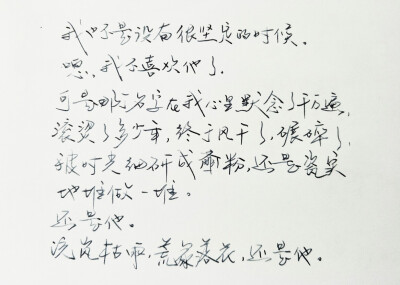 我口是没有很坚定的时候。
嗯，我不喜欢他了。
可是那名字在我心里默念了千万遍，
滚烫了多少年，终于风干了，碾碎了，
被时光细研成齑粉，还是瓷实
地堆做一堆。
还是他。
沉岚枯，荒冢落花，还是他。